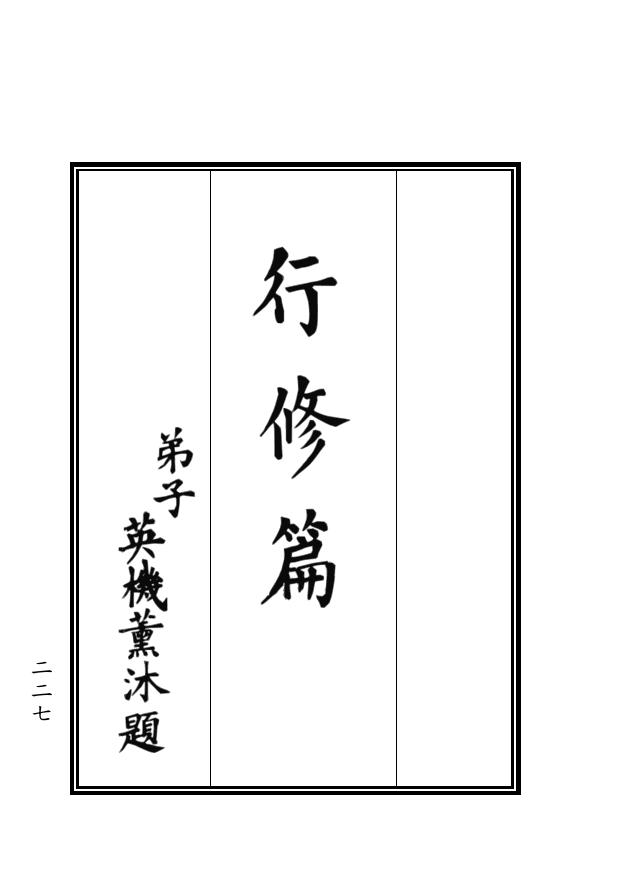 行修篇
弟子
英機薰沐題
二二七